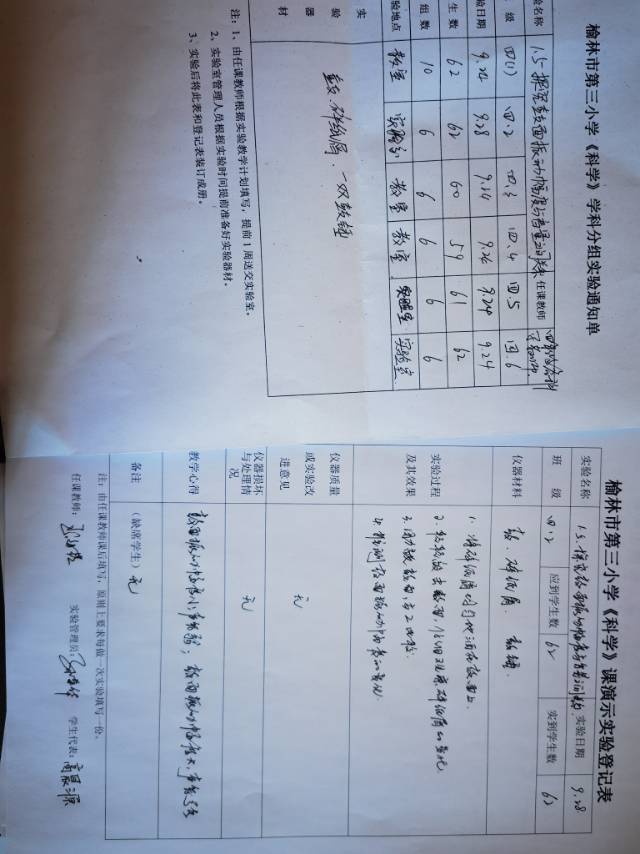 榆林市第三小学《科学》学科分组实验通知单
验名称 1.5探究鼓面振动幅度与音量的关系 任课教师
级 四(1) 四.2 四.3 四.4 四.5 四.6
验日期 9.24 9.28 9.24 9.26 9.24 9.24
生数 62 62 60 59 61 62
组数 10 6 6 6 6 6
验地点 教室 实验室 教室 教室 实验室 实验室
实验器材 鼓、碎纸屑、一双鼓锤
注:1、由任课教师根据实验教学计划填写,提前1周送交实验室。
2、实验室管理人员根据实验时间提前准备好实验器材。
3、实验后将此表和登记表装订成册。
榆林市第三小学《科学》课演示实验登记表
实验名称 1.5.探究鼓面振动幅度与音量间的 实验日期 9.28
班 级 四.2 应到学生数 62 实到学生数 62
仪器材料 鼓、碎纸屑、鼓锤
实验过程及其效果 1.将碎纸屑均匀地洒在鼓面上.
2.轻轻敲击鼓面,仔细观察碎纸屑的变化
3.用力敲鼓面,与2比较.
4.推测鼓面振动幅度的变化.
仪器质量或实验改进意见 无
仪器损坏与处理情况 无
教学心得 鼓面振动幅度小,声音弱;鼓面振动幅度大,声音强
备注 (缺席学生) 无
注:由任课教师课后填写,原则上要求每做一次实验填写一份。
任课教师: 实验管理员: 学生代表: